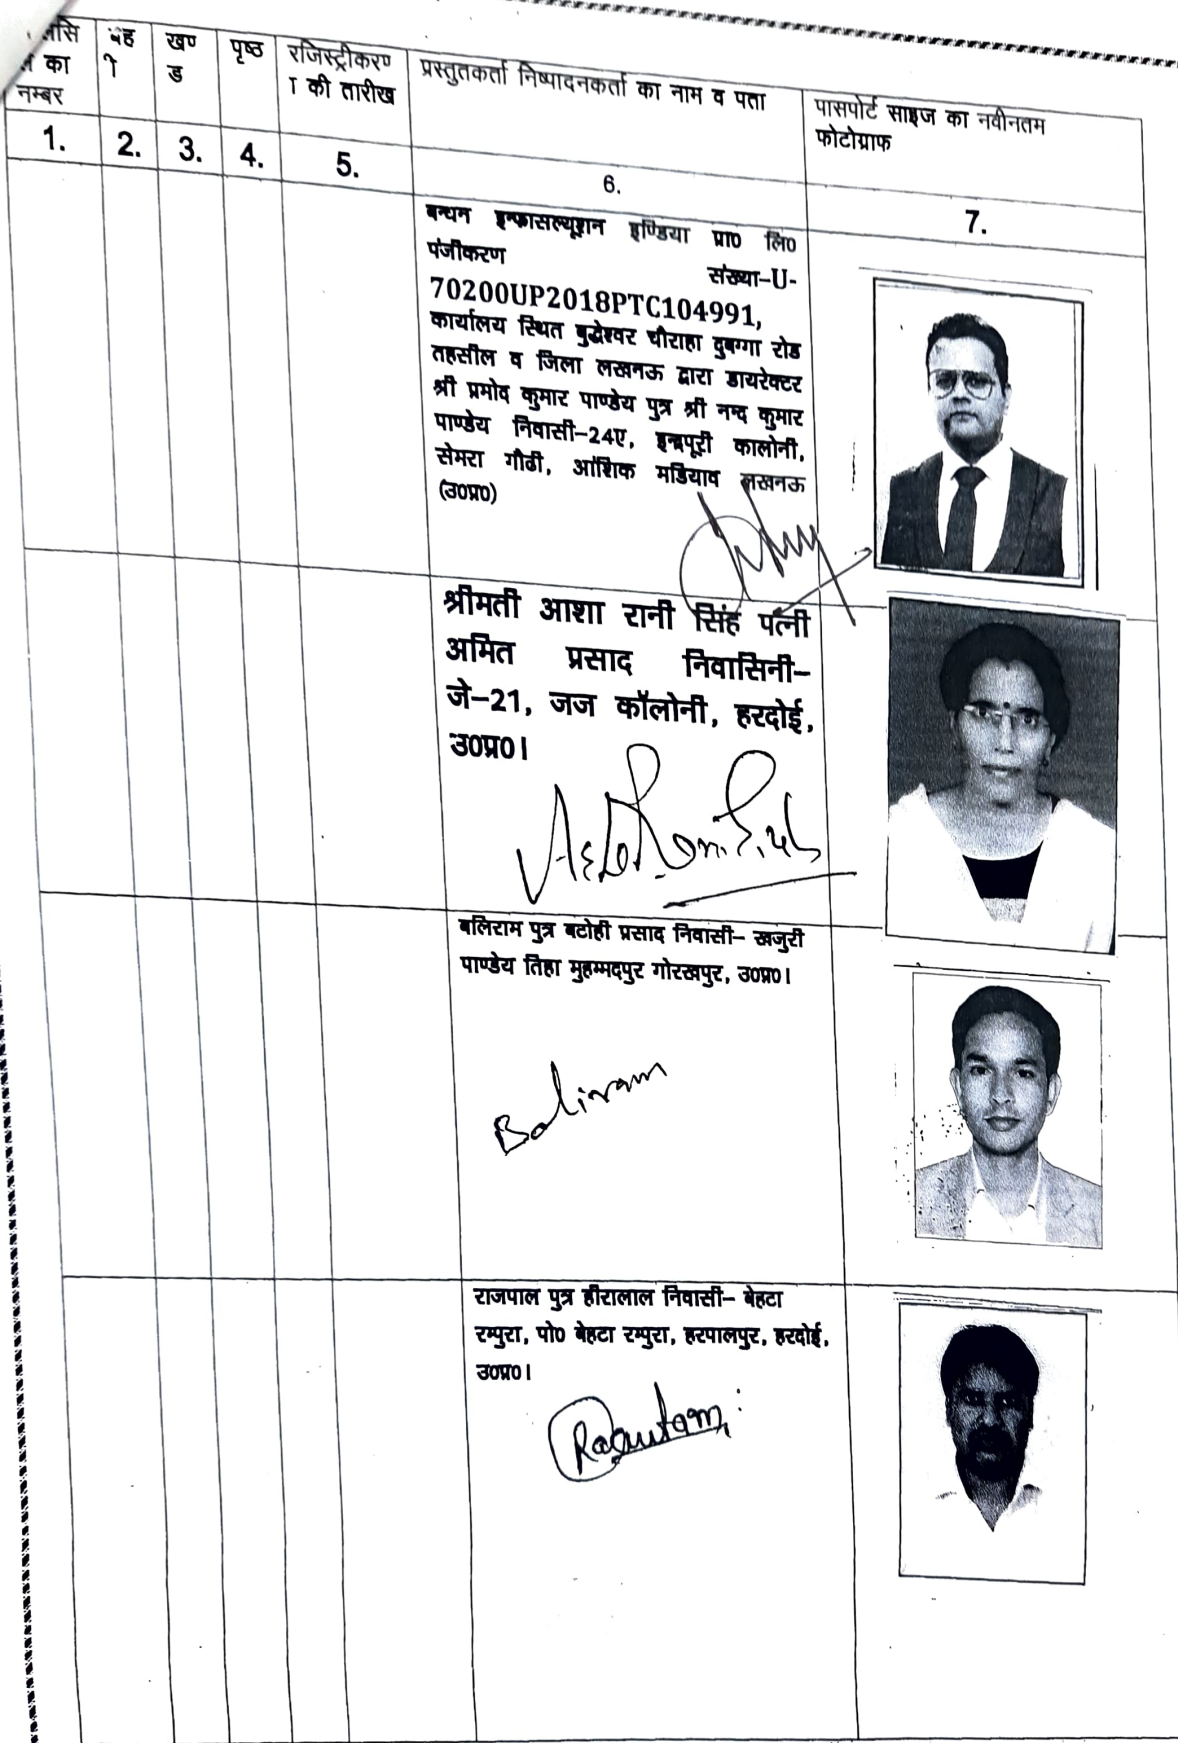 का
नम्बर
खण
ड
पृष्ठ
रजिस्ट्रीकरण
ा की तारीख
प्रस्तुतकर्ता निष्पादनकर्ता का नाम व पता
पासपोर्ट साइज का नवीनतम
फोटोग्राफ
1. 2. 3. 4. 5. 6. 7.
बन्धन इन्फ्रासल्यूशन इण्डिया प्रा० लि०
पंजीकरण संख्या–U-
70200UP2018PTC104991,
कार्यालय स्थित बुद्धेश्वर चौराहा दुबग्गा रोड
तहसील व जिला लखनऊ द्वारा डायरेक्टर
श्री प्रमोद कुमार पाण्डेय पुत्र श्री नन्द कुमार
पाण्डेय निवासी–24ए, इन्द्रपूरी कालोनी,
सेमरा गौढी, आंशिक मडियाव लखनऊ
(उ०प्र०)
श्रीमती आशा रानी सिंह पत्नी
अमित प्रसाद निवासिनी–
जे–21, जज कॉलोनी, हरदोई,
उ०प्र०।
बलिराम पुत्र बटोही प्रसाद निवासी– खजुरी
पाण्डेय तिहा मुहम्मदपुर गोरखपुर, उ०प्र०।
Baliram
राजपाल पुत्र हीरालाल निवासी– बेहटा
रम्पुरा, पो० बेहटा रम्पुरा, हरपालपुर, हरदोई,
उ०प्र०।